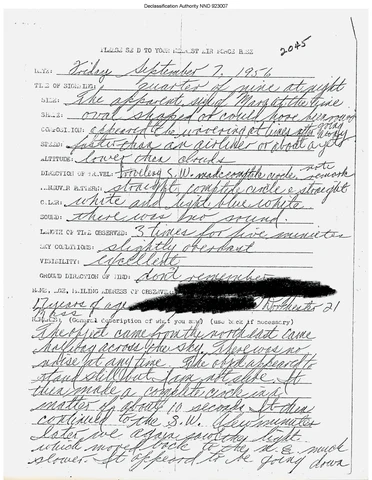 Declassification Authority NND 923007
2045
PLEASE SEND TO YOUR NEAREST AIR FORCE BASE
DATE: Friday September 7, 1956
TIME OF SIGHTING: quarter of nine at night
SIZE: The apparent size of Mars at the time
SHAPE: oval shaped or could have been
COMPOSITION: appeared to be wavering at times
SPEED: faster than an airliner or about a jet
ALTITUDE: lower than clouds
DIRECTION OF TRAVEL: Traveling S.W. made complete circle note remark
straight, complete circle & straight
COLOR: white and light blue white
SOUND: there was no sound.
LENGTH OF TIME OBSERVED: 3 times for five minutes
SKY CONDITIONS: slightly overcast
VISIBILITY: excellent
GROUND DIRECTION OF WIND: don't remember
NAME, AGE, MAILING ADDRESS OF OBSERVER:
17 years of age Dorchester 21
Mass
(General description of what you saw) (use back if necessary)
The object came from the northeast came
halfway across the sky. There was no
noise at any time. The object appeared to
stand still but I am not sure. It
then made a complete circle in a
matter of about 10 seconds. It then
continued to the S.W. A few minutes
later we again saw the light
which moved back to the N.E. much
slower. It appeared to be going down